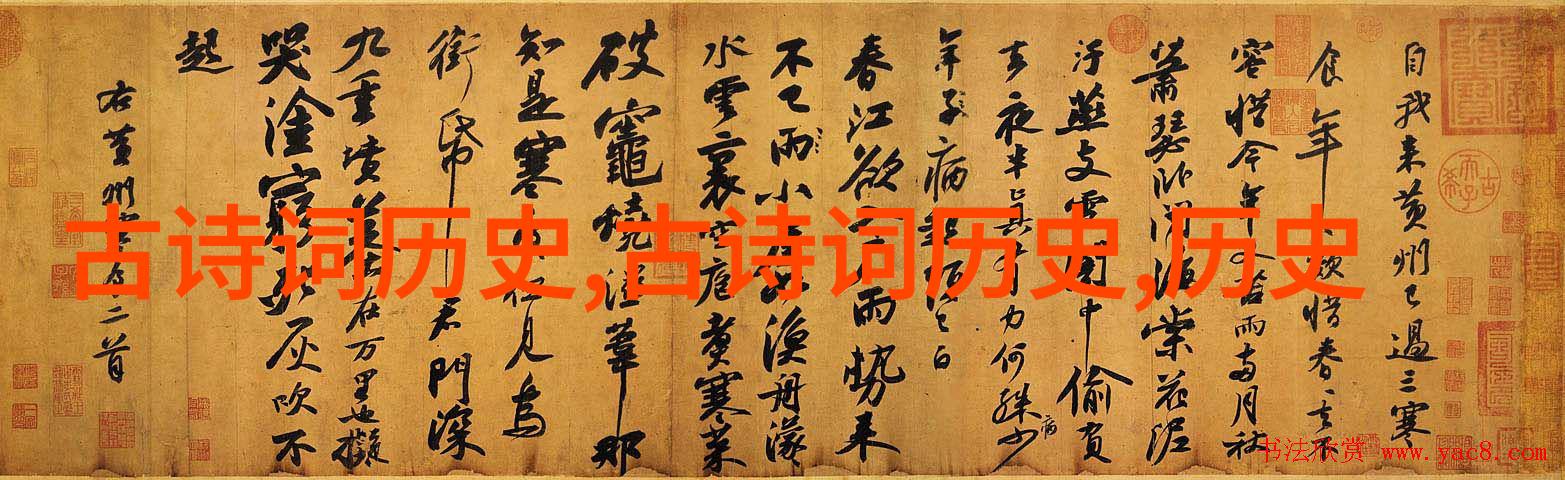 自我来黄州已過三寒
食年年欲惜春春去不
容惜今年又苦雨兩月秋
蕭瑟卧聞海棠花泥
汙燕支雪闇中偷負
去夜半真有力何殊少
病
年子病起頭已白
春江欲入戶雨勢来
不已雨小屋如漁舟濛
水雲裏空庖煮寒菜
破竈燒濕葦那
知是寒食但見烏
銜帋君門深
九重墳墓在万里也擬
哭塗窮死灰吹不
起
右黄州寒食二首
古诗词历史,古诗词历史,历史
书法欣赏 www.yac8.com